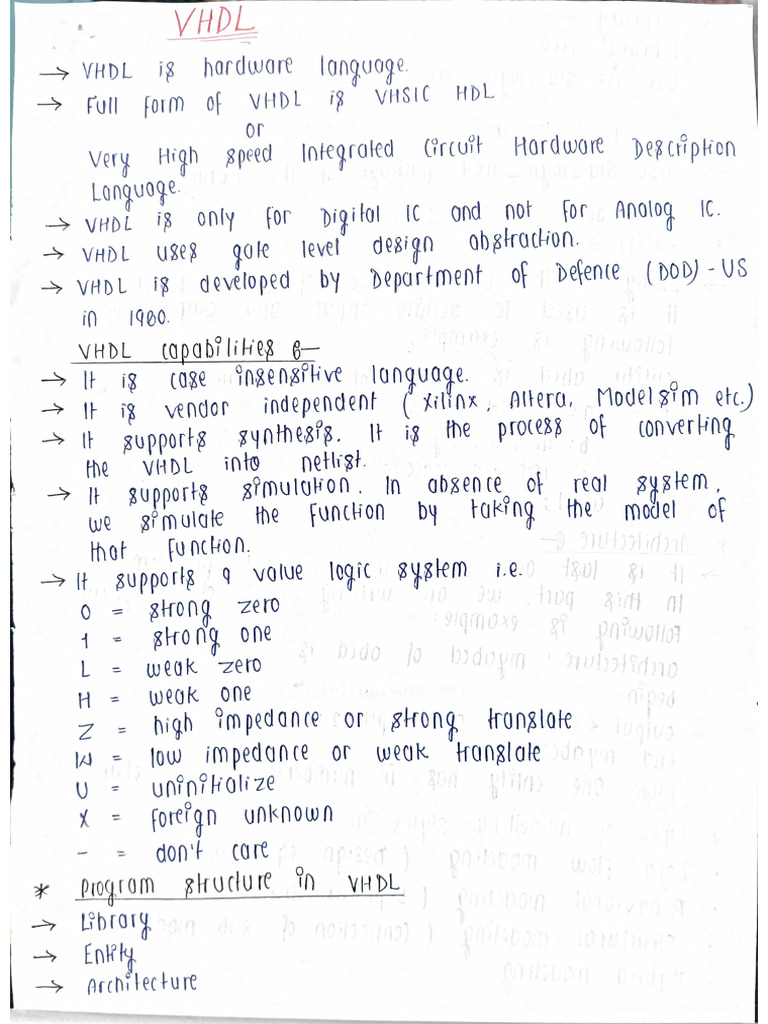 VHDL
→ VHDL is hardware language.
→ Full form of VHDL is VHSIC HDL
or
Very High speed Integrated Circuit Hardware Description
Language.
→ VHDL is only for Digital IC and not for Analog IC.
→ VHDL uses gate level design abstraction.
→ VHDL is developed by Department of Defence (DOD) - US
in 1980.
VHDL capabilities :-
→ It is case insensitive language.
→ It is vendor independent ( Xilinx, Altera, Modelsim etc.)
→ It supports synthesis. It is the process of converting
the VHDL into netlist.
→ It supports simulation. In absence of real system,
we simulate the function by taking the model of
that function.
→ It supports 9 value logic system i.e.
0 = strong zero
1 = strong one
L = weak zero
H = weak one
Z = high impedance or strong translate
W = low impedance or weak translate
U = uninitialize
X = foreign unknown
- = don't care
* Program structure in VHDL
→ Library
→ Entity
→ Architecture